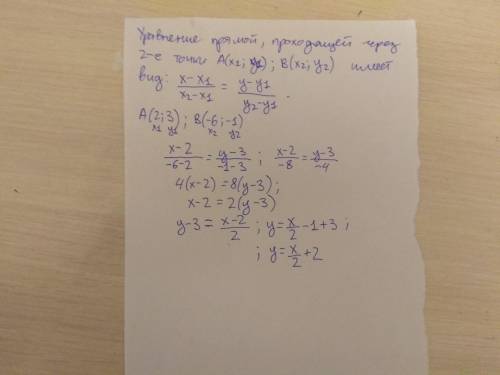 Уравнение прямой, проходящей через
2-е точки A(x₁; y₁); B(x₂; y₂) имеет
вид: (x-x₁)/(x₂-x₁) = (y-y₁)/(y₂-y₁).
A(2;3); B(-6;-1)
x₁ y₁ x₂ y₂
(x-2)/(-6-2) = (y-3)/(-1-3); (x-2)/(-8) = (y-3)/(-4)
4(x-2) = 8(y-3);
x-2 = 2(y-3)
y-3 = (x-2)/2; y = x/2 -1+3;
; y = x/2 + 2